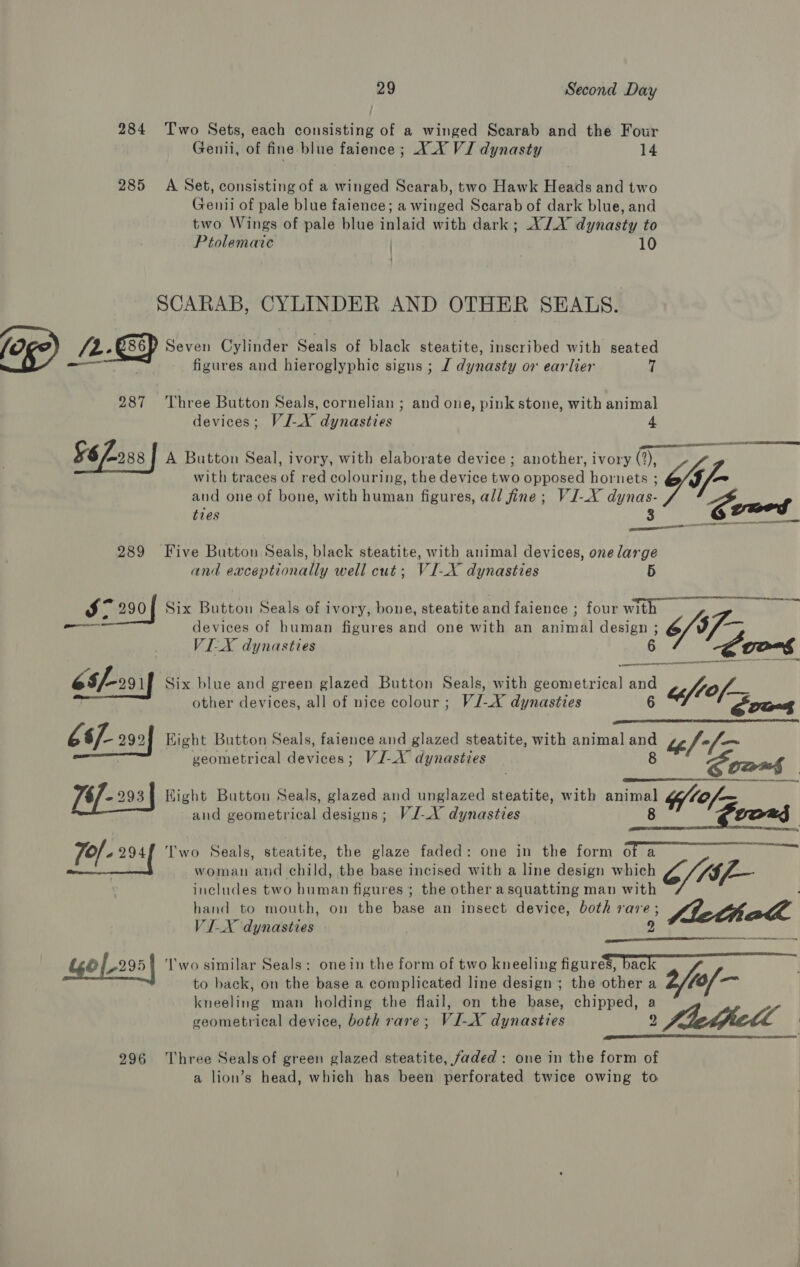 29 Second Day
284 Two Sets, each consisting of a winged Scarab and the Four
Genii, of fine blue faience; XXVI dynasty 14
285 A Set, consisting of a winged Scarab, two Hawk Heads and two
Genii of pale blue faience; a winged Scarab of dark blue, and
two Wings of pale blue inlaid with dark; XIX dynasty to
Ptolemaic 10
SCARAB, CYLINDER AND OTHER SEALS.
286 Seven Cylinder Seals of black steatite, inscribed with seated
figures and hieroglyphic signs; I dynasty or earlier 7
287 Three Button Seals, cornelian; and one, pink stone, with animal
devices; VI-X dynasties 4
288 A Button Seal, ivory, with elaborate device; another, ivory (?),
with traces of red colouring, the device two opposed hornets;
and one of bone, with human figures, all fine; VI-X dynas-
ties 3
289 Five Button Seals, black steatite, with animal devices, one large
and exceptionally well cut; VI-X dynasties 5
290 Six Button Seals of ivory, bone, steatite and faience; four with
devices of human figures and one with an animal design;
VI-X dynasties 6
68/- 291 Six blue and green glazed Button Seals, with geometrical and
other devices, all of nice colour; VI-X dynasties 6
68/- 292 Eight Button Seals, faience and glazed steatite, with animal and
geometrical devices; VI-X dynasties 8
293 Eight Button Seals, glazed and unglazed steatite, with animal
and geometrical designs; VI-X dynasties 8
70/- 294 Two Seals, steatite, the glaze faded: one in the form of a
woman and child, the base incised with a line design which
includes two human figures; the other a squatting man with
hand to mouth, on the base an insect device, both rare;
VI-X dynasties 2
295 Two similar Seals: one in the form of two kneeling figures, back
to back, on the base a complicated line design; the other a
kneeling man holding the flail, on the base, chipped, a
geometrical device, both rare; VI-X dynasties 2
296 Three Seals of green glazed steatite, faded: one in the form of
a lion's head, which has been perforated twice owing to